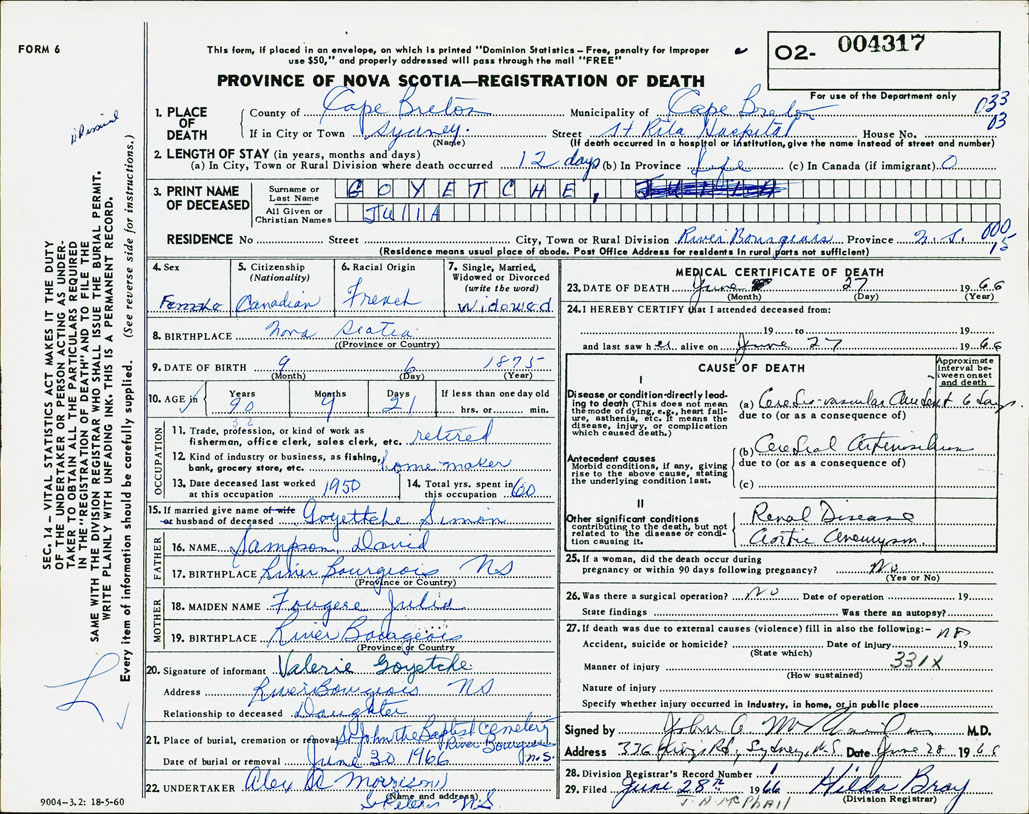 FORM 6
This form, if placed in an envelope, on which is printed "Dominion Statistics–Free, penalty for improper
use $50," and properly addressed will pass through the mail "FREE"
PROVINCE OF NOVA SCOTIA—REGISTRATION OF DEATH
O2- 004317
For use of the Department only
033
03
1. PLACE OF DEATH
County of Cape Breton Municipality of Cape Breton
If in City or Town Sydney. Street St Rita Hospital House No.
(Name) (If death occurred in a hospital or institution, give the name instead of street and number)
2. LENGTH OF STAY (in years, months and days)
(a) In City, Town or Rural Division where death occurred 12 days (b) In Province Life (c) In Canada (if immigrant) 0
3. PRINT NAME OF DECEASED
Surname or Last Name GOYETCHE,
All Given or Christian Names JULIA
RESIDENCE No Street City, Town or Rural Division River Bourgeois Province N.S.
000
15
(Residence means usual place of abode. Post Office Address for residents in rural parts not sufficient)
4. Sex Female
5. Citizenship (Nationality) Canadian
6. Racial Origin French
7. Single, Married, Widowed or Divorced (write the word) Widowed
8. BIRTHPLACE Nova Scotia
(Province or Country)
9. DATE OF BIRTH 9 6 1875
(Month) (Day) (Year)
10. AGE Years 90 Months 9 Days 21 If less than one day old hrs. or min.
OCCUPATION
11. Trade, profession, or kind of work as
fisherman, office clerk, sales clerk, etc. retired
12. Kind of industry or business, as fishing,
bank, grocery store, etc. home maker
13. Date deceased last worked
at this occupation 1950
14. Total yrs. spent in
this occupation 60
15. If married give name of wife
or husband of deceased Goyettche Simon
FATHER
16. NAME Sampson, David
17. BIRTHPLACE River Bourgeois NS
(Province or Country)
MOTHER
18. MAIDEN NAME Fougere Julia
19. BIRTHPLACE River Bourgeois
(Province or Country)
20. Signature of informant Valerie Goyetche
Address River Bourgeois NS
Relationship to deceased Daughter
21. Place of burial, cremation or removal St John the Baptist Cemetery
River Bourgeois
N.S.
Date of burial or removal June 30 1966
22. UNDERTAKER Alex D Morrison
(Name and address)
St Peters N.S
9004–3.2: 18-5-60
MEDICAL CERTIFICATE OF DEATH
23. DATE OF DEATH June 27 1966
(Month) (Day) (Year)
24. I HEREBY CERTIFY that I attended deceased from:
19 to 19
and last saw her alive on June 27 1966
CAUSE OF DEATH
Approximate interval between onset and death
I
Disease or condition directly leading to death (This does not mean the mode of dying, e.g., heart failure, asthenia, etc. It means the disease, injury, or complication which caused death.)
(a) Cerebro-vascular Accident 6 days
due to (or as a consequence of)
Antecedent causes
Morbid conditions, if any, giving rise to the above cause, stating the underlying condition last.
(b) Cerebral
due to (or as a consequence of)
(c)
II
Other significant conditions
contributing to the death, but not related to the disease or condition causing it.
Renal Disease
Aortic Aneurysm
25. If a woman, did the death occur during
pregnancy or within 90 days following pregnancy? No
(Yes or No)
26. Was there a surgical operation? No Date of operation 19
State findings Was there an autopsy?
27. If death was due to external causes (violence) fill in also the following:– no
Accident, suicide or homicide? Date of injury 19
(State which)
331X
Manner of injury
(How sustained)
Nature of injury
Specify whether injury occurred in industry, in home, or in public place
Signed by John A. M.D.
Address 336 Kings Rd, Sydney, N.S. Date June 28 196
28. Division Registrar's Record Number
29. Filed June 28th 1966 Hilda Bray
(Division Registrar)
J. A. McPhail
SEC. 14 – VITAL STATISTICS ACT MAKES IT THE DUTY
OF THE UNDERTAKER OR PERSON ACTING AS UNDER-
TAKER TO OBTAIN ALL THE PARTICULARS REQUIRED
IN THE "REGISTRATION OF DEATH" AND TO FILE THE
SAME WITH THE DIVISION REGISTRAR WHO SHALL ISSUE THE BURIAL PERMIT.
WRITE PLAINLY WITH UNFADING INK. THIS IS A PERMANENT RECORD.
Every item of information should be carefully supplied. (See reverse side for instructions.)